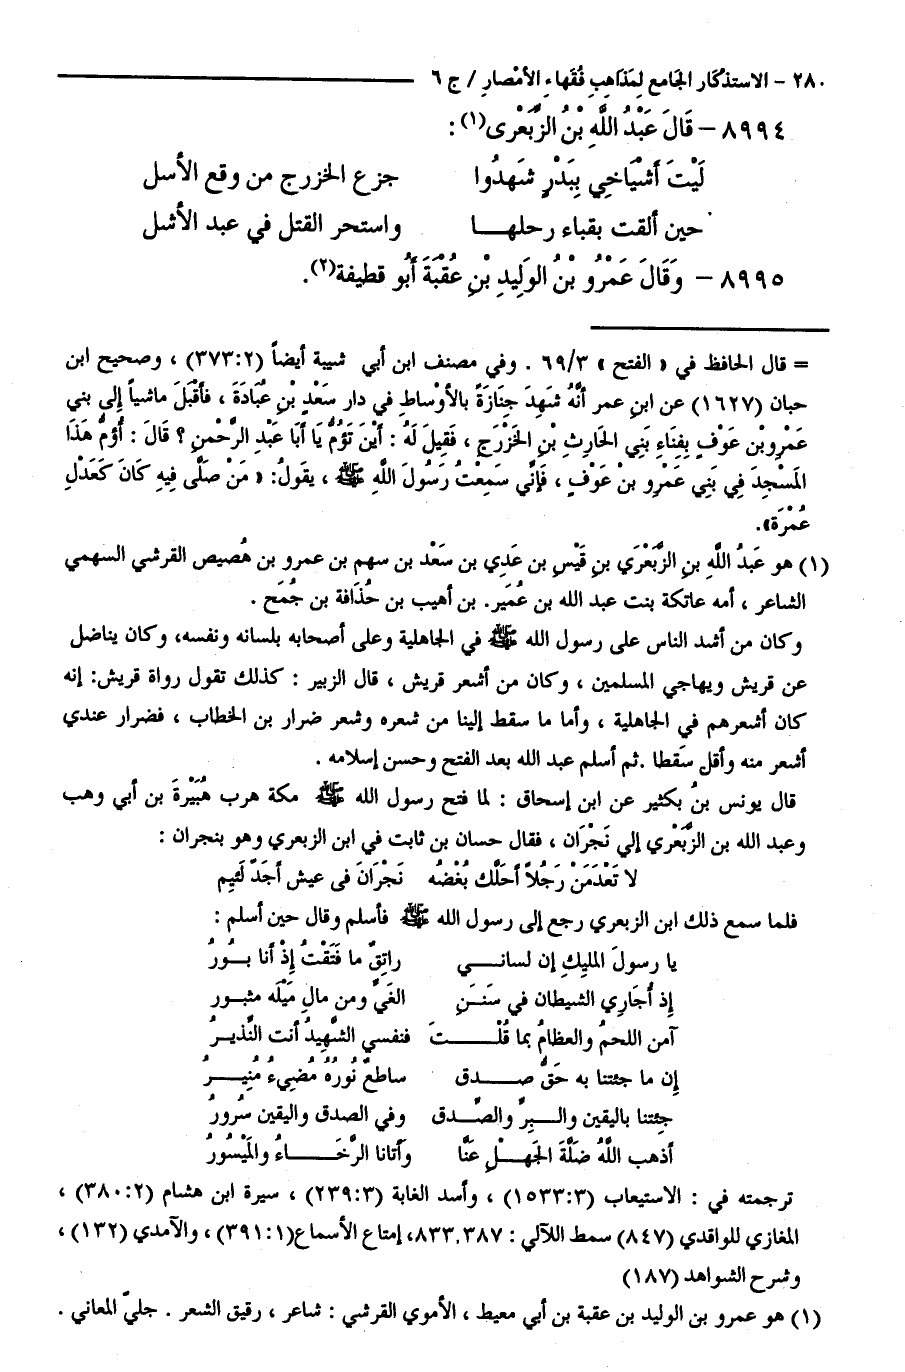 ٢٨٠ – الاستذكار الجامع لمذاهب فُقَهاء الأمْصار / ج ٦
٨٩٩٤ – قَالَ عَبْدُ اللَّهِ بْنُ الزِّبَعْرى(١):
لَيْتَ أَشْيَاخي بِبَدْرٍ شَهدُوا جزع الخزرج من وقع الأسل
حين ألقت بقباء رحلهـا واستحر القتل في عبد الأشل
٨٩٩٥ – وَقَالَ عَمْرُو بْنُ الوَلِيدِ بْنِ عُقْبَةَ أبُو قطيفة(٢).
= قال الحافظ في « الفتح » ٦٩/٣ . وفي مصنف ابن أبي شيبة أيضاً (٣٧٣:٢) ، وصحيح ابن
حبان (١٦٢٧) عن ابنِ عمر أنَّهُ شَهِدَ جِنَازَةً بالأوْساطِ في دار سَعْدِ بْنِ عُبَادَةَ ، فأقْبَلَ ماشياً إلى بني
عَمْرِوبْن عَوْفٍ بِفِنَاءِ بَنِي الحَارِثِ بْنِ الخَزْرَجِ ، فَقِيلَ لَهُ : أيْنَ تَؤُمُّ يَا أبَا عَبْدِ الرَّحْمنِ ؟ قَالَ : أؤُمُّ هَذَا
المَسْجِدَ فِي بَنِي عَمْرِو بن عَوْفٍ ، فَإنِّي سَمِعْتُ رَسُولَ اللَّهِ ﷺ ، يقولُ: « مَنْ صَلَّى فِيهِ كَانَ كَعَدْلِ
عُمْرَة».
(١) هو عَبدُ اللَّهِ بنِ الزِّبَعْرَي بنِ قَيْسِ بن عَدِي بن سَعْد بن سهم بن عمرو بن هُصيص القرشي السهمي
الشاعر ، أمه عاتكة بنت عبد الله بن عُمَير. بن أهيب بن حُذَافة بن جُمَح .
وكان من أشد الناس على رسول الله ﷺ في الجاهلية وعلى أصحابه بلسانه ونفسه، وكان يناضل
عن قريش ويهاجي المسلمين ، وكان من أشعر قريش ، قال الزبير : كذلك تقول رواة قريش: إنه
كان أشعرهم في الجاهلية ، وأما ما سقط إلينا من شعره وشعر ضرار بن الخطاب ، فضرار عندي
أشعر منه وأقل سَقطا .ثم أسلم عبد الله بعد الفتح وحسن إسلامه .
قال يونس بنُ بكثير عن ابن إسحاق : لما فتح رسول الله ﷺ مكة هرب هُبَيْرةَ بن أبي وهب
وعبد الله بن الزِّبَعْري إلي نَجْرَان ، فقال حسان بن ثابت في ابن الزبعري وهو بنجران :
لا تَعْدَمَنْ رَجُلاً أحَلَّكَ بُغْضُه نَجْرَانَ في عيش أجَدَّ لَئيم
فلما سمع ذلك ابن الزبعري رجع إلى رسول الله ﷺ فأسلم وقال حين أسلم :
يا رسولَ المليكِ إن لسانـي راتِقٌ ما فَتَقْتُ إذْ أنا بـورُ
إذ أُجَارِي الشيطان في سَنَـن الغَيِّ ومن مالَ مَيْلَه مثبـور
آمن اللحمُ والعظامُ بما قُلْـتَ فنفسي الشَّهِيدُ أنت النَّذيرُ
إن ما جئتنا به حَقُّ صـدق ساطعٌ نُورُهُ مُضيءُ مُنيـرُ
جِئتنا باليقين والـبِرِّ والصِّدق وفي الصدق واليقين سُرُورُ
أذهب اللَّهُ ضَلَّةَ الجَهـلِ عَنَّا وأتانا الرَّخَـاءُ والمَيْسُورُ
ترجمته في : الاستيعاب (١٥٣٣:٣) ، وأسد الغابة (٢٣٩:٣) ، سيرة ابن هشام (٣٨٠:٢) ،
المغازي للواقدي (٨٤٧) سمط اللآلي : ٨٣٣,٣٨٧، إمتاع الأسماع(٣٩١:١) ، والآمدي (١٣٢) ،
وشرح الشواهد (١٨٧)
(١) هو عمرو بن الوليد بن عقبة بن أبي معيط ، الأموي القرشي : شاعر ، رقيق الشعر . جليّ المعاني .